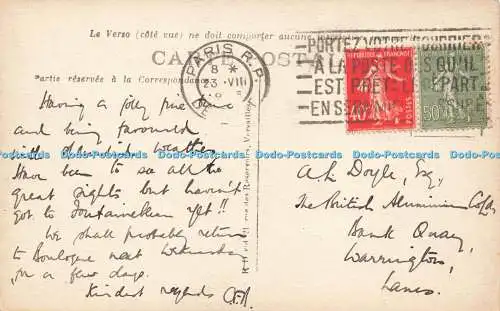 Le Verso (côté vue) ne doit comporter aucune
CARTE POSTALE
Partie réservée à la Correspondance
PARIS R.P.
8 *
23 VIII
PORTEZ VOTRE COURRIER
A LA POSTE DES QU'IL
EST PRÊT LE DÉPART
EN SERA
40
POSTES
50
Having a jolly fine time
and being favoured
with splendid weather
Have been to see all the
great sights but haven't
got to Fontainebleau yet!!
We shall probably return
to Boulogne next Wednesday
in a few days.
Kindest regards
A. L. Doyle, Esq.,
The British Aluminium Co Ld,
Bank Quay,
Warrington,
Lancs.
rue des Réservoirs, Versailles
Dudads-Postcards